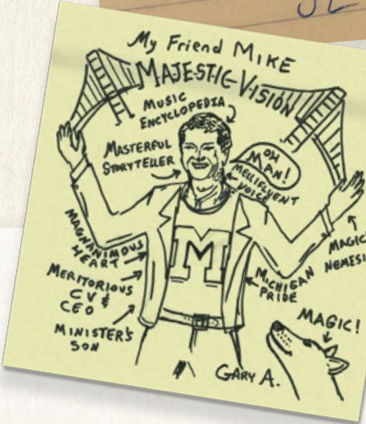 My Friend MIKE
MAJESTIC VISION
MUSIC
ENCYCLOPEDIA
MASTERFUL
STORYTELLER
OH
MAN!
MELLIFLUENT
VOICE
MAGNANIMOUS
HEART
MERITORIOUS
CV &
CEO
MINISTER'S
SON
M
MICHIGAN
PRIDE
MAGIC'
NEMESI
MAGIC!
GARY A.